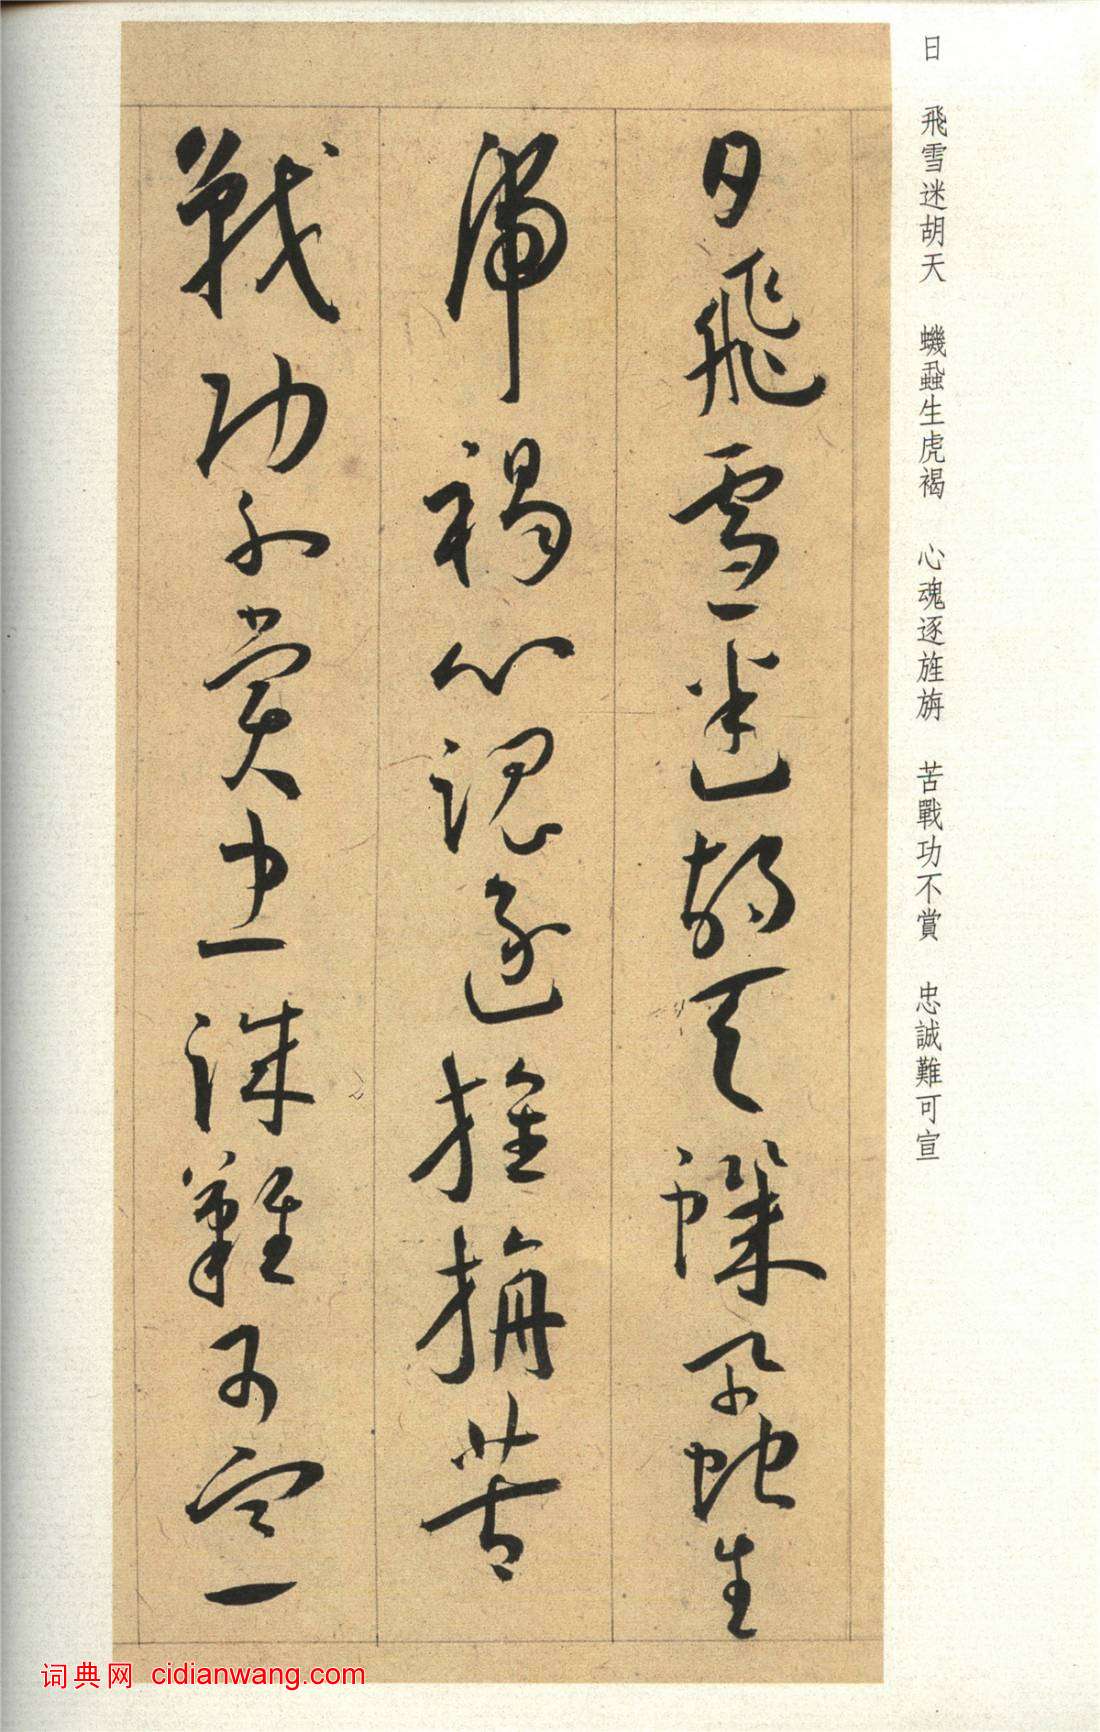 日 飛雪迷胡天 蟣蝨生虎褐 心魂逐旌旃 苦戰功不賞 忠誠難可宣
日飛雪迷胡天蟣蝨生
虎褐心魂逐旌旃苦
戰功不賞忠誠難可宣
词典网 cidianwang.com